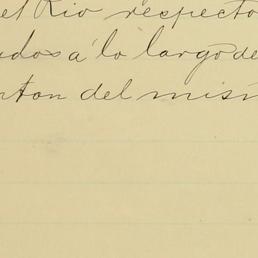 el Rio respecto
ados á lo largo de
rton del mism